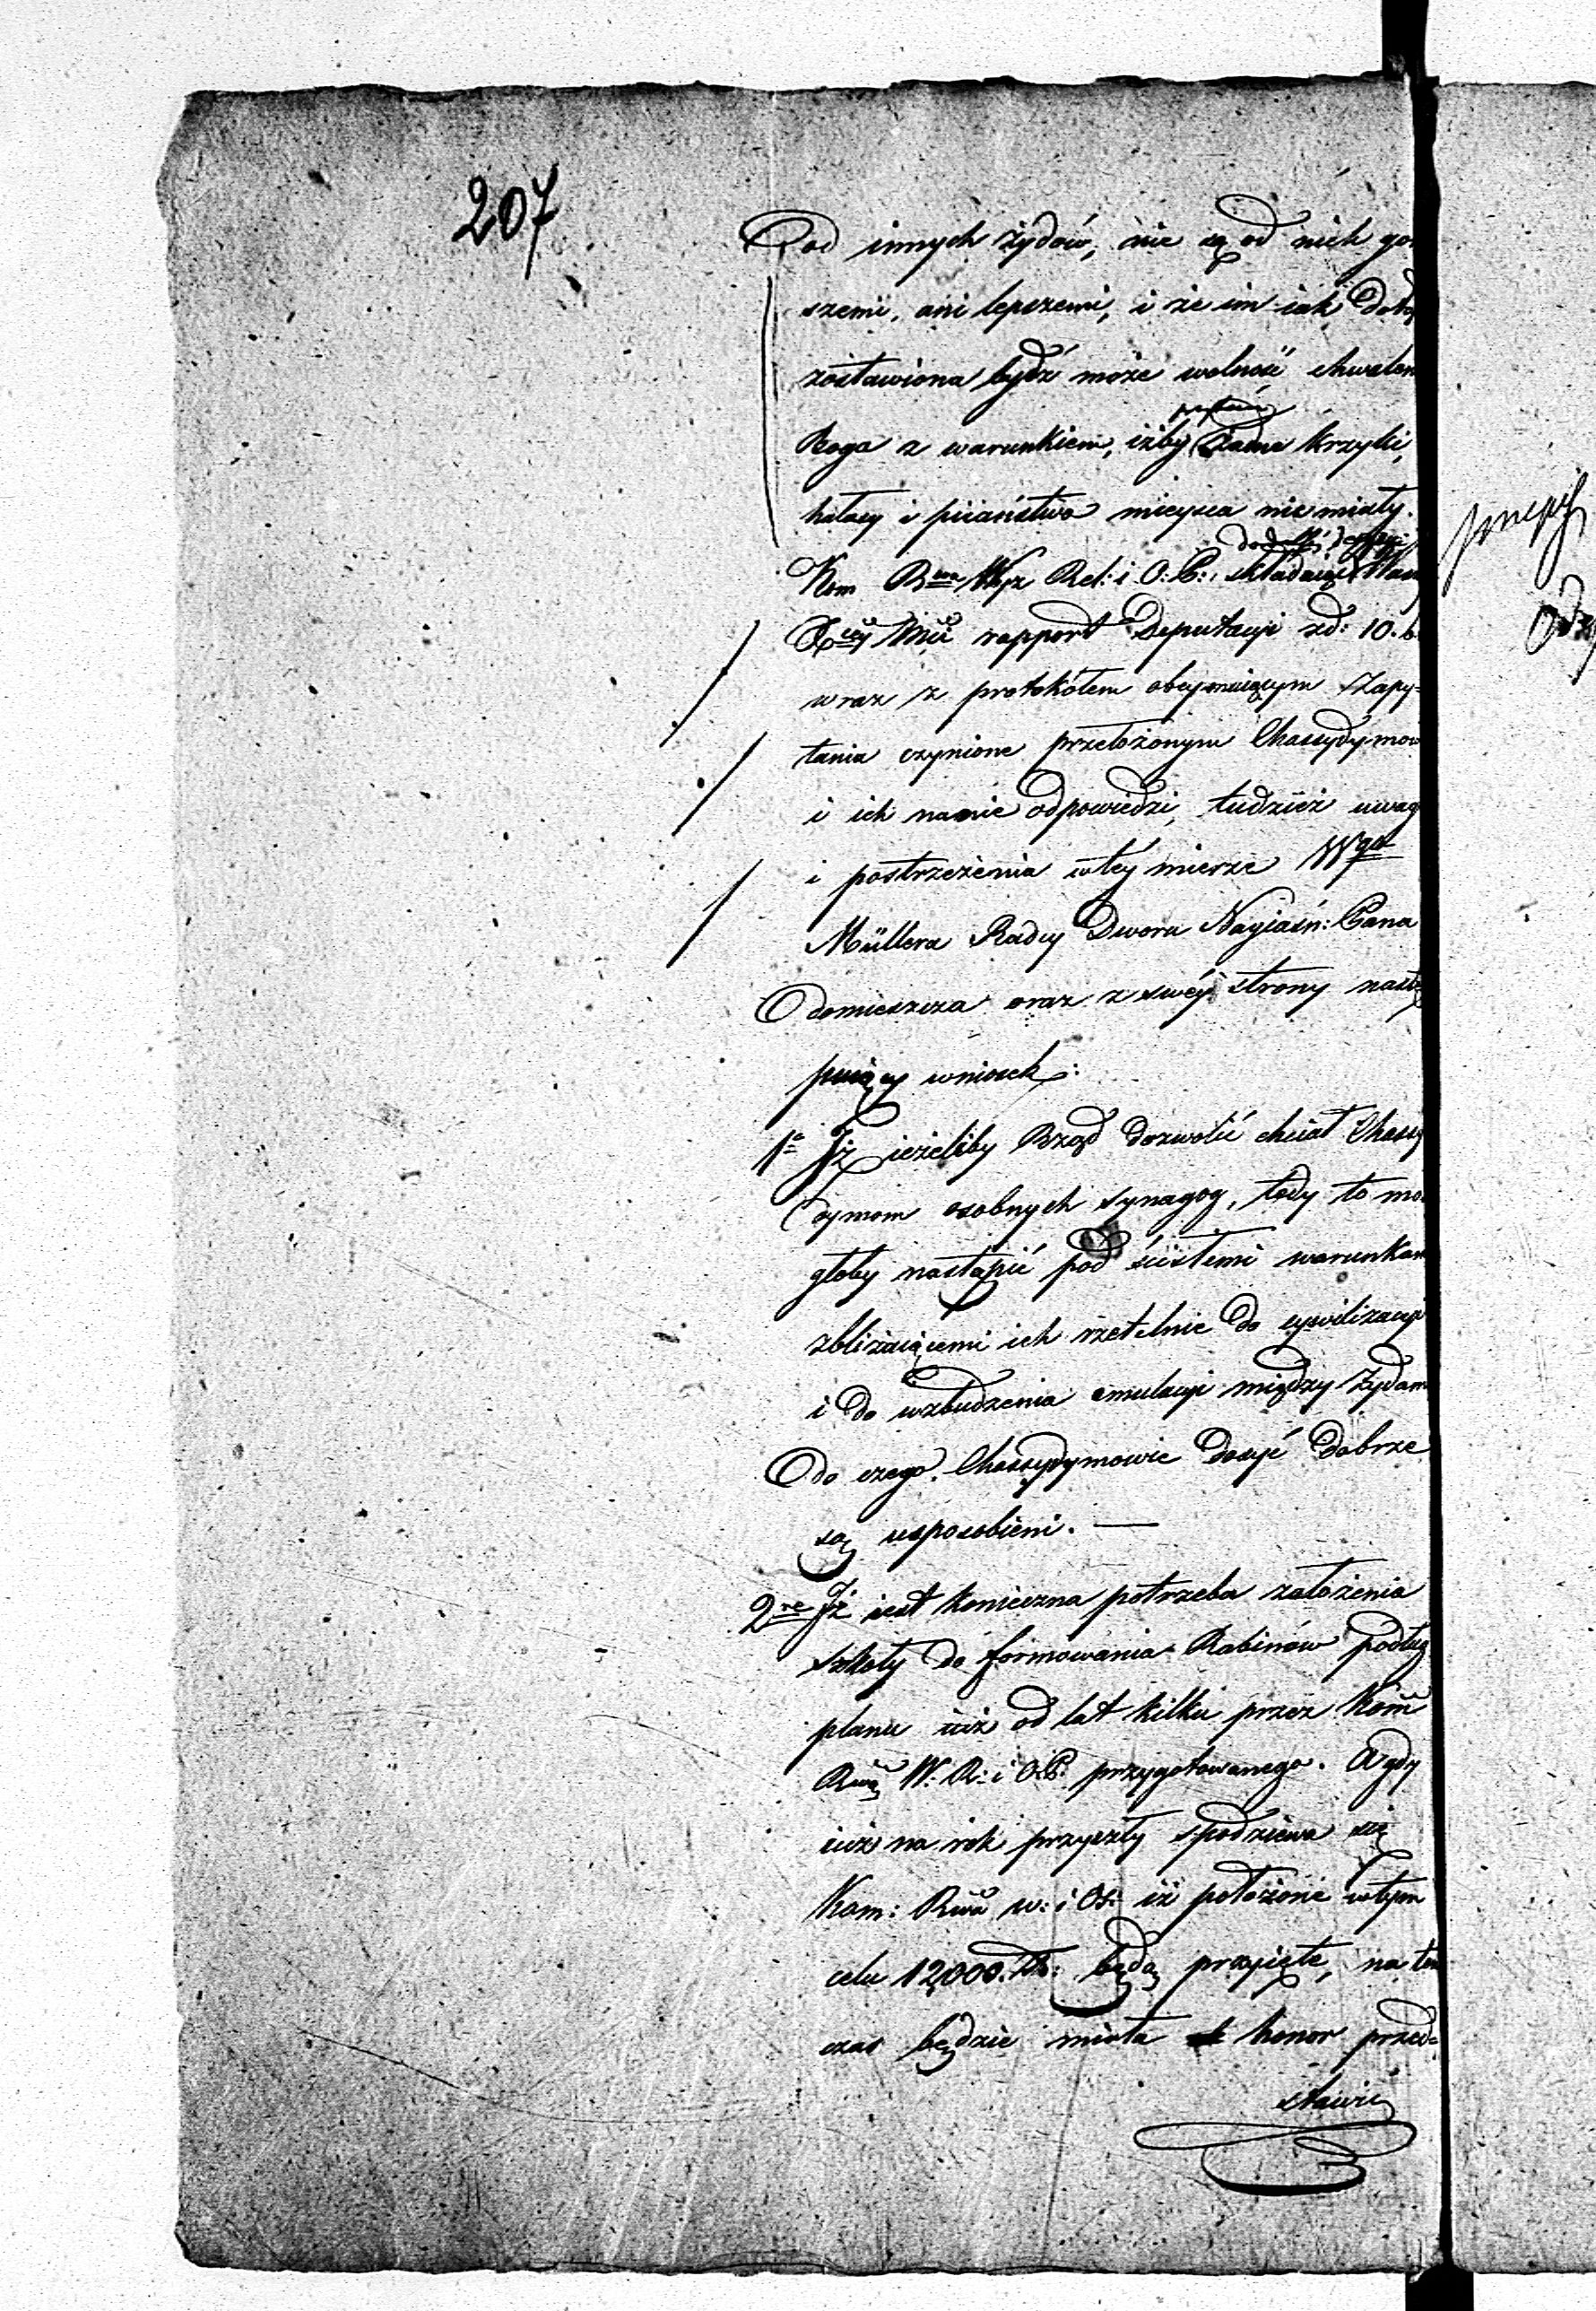 207
od innych żydów, nie są od nich gor
szemi, ani lepszemi, i że im iak dotą
zostawiona bydź może wolność chwalen
Boga z warunkiem, iżby żadne krzyki,
hałasy i piiaństwo mieysca nie miały.
Kom Rwa Wyz Rel: i O: P: składaiąc
Xcey Mci rapport Deputacyi zd: 10. b
wraz z protokółem obeymuiącym Zapy-
tania czynione przełożonym Chassydymow
i ich na nie odpowiedzi, tudzież uwag
i postrzeżenia w tey mierze Wgo
Müllera Radcy Dworu Nayiaśn: Pana
domieszcza oraz z swéy strony nastę
puiący wniosek:
1e Iż ieżeliby Rząd dozwolić chciał Chassy
dymom osobnych synagog, tedy to mo
głoby nastąpić pod ścisłemi warunkam
zbliżaiącemi ich rzetelnie do cywilizacyi
i do wzbudzenia emulacyi między Żydam
do czego Chassydymowie dosyć dobrze
są usposobieni. —
2re Iż iest konieczna potrzeba założenia
szkoły do formowania Rabinów podług
planu iuż od lat kilku przez Kom
Rwą W: R: i O: P: przygotowanego. A gdy
iuż na rok przyszły spodziewa się
Kom: Rwa w: i Oś: iż położone w tym
celu 12,000. Zł: będą przyięte, na ten
czas będzie miała honor przed-
stawić